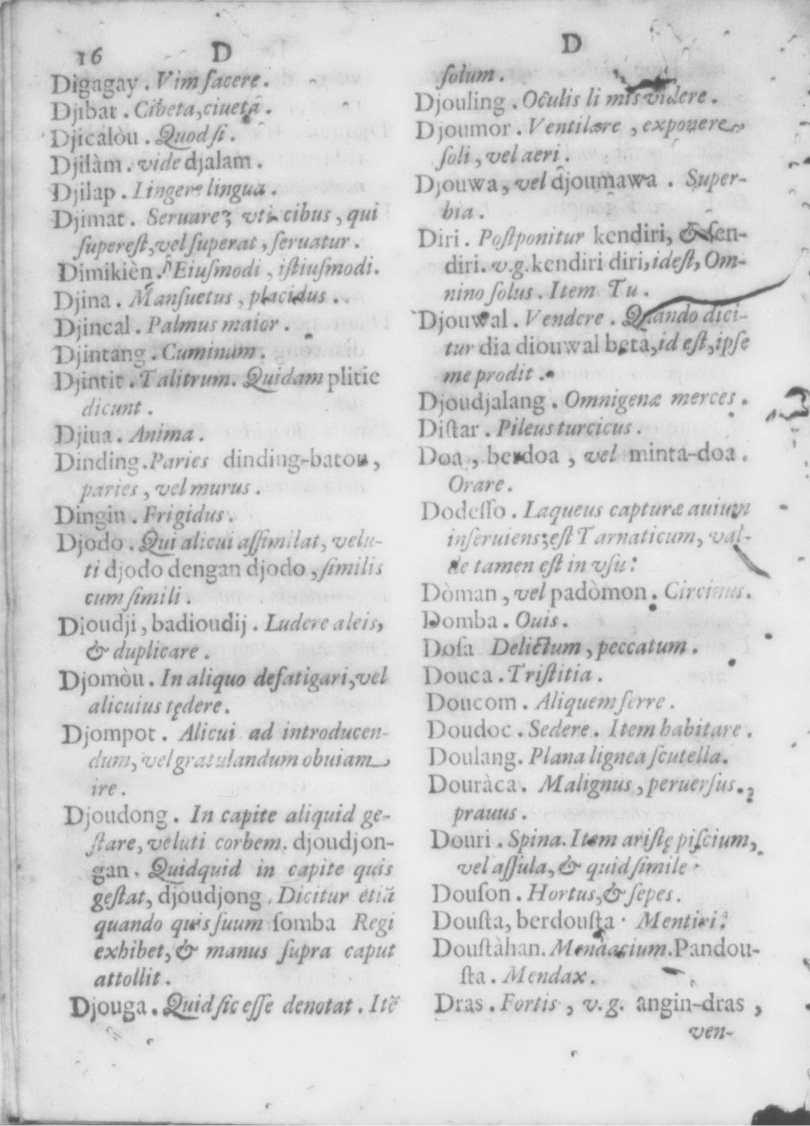 16 D
Digagay. Vim facere.
Djibat. Cibeta, ciueta.
Djicalòu. Quod si.
Djilàm. vide djalam.
Djilap. Lingere lingua.
Djimat. Seruare; vti cibus, qui
superest, vel superat, seruatur.
Dimikièn. Eiusmodi, istiusmodi.
Djina. Mansuetus, placidus.
Djincal. Palmus maior.
Djintang. Cuminum.
Djintit. Talitrum. Quidam plitic
dicunt.
Djiua. Anima.
Dinding. Paries dinding-batou,
paries, vel murus.
Dingin. Frigidus.
Djodo. Qui alicui assimilat, velu-
ti djodo dengan djodo, similis
cum simili.
Djoudji, badioudij. Ludere aleis,
& duplicare.
Djomòu. In aliquo defatigari, vel
alicuius tędere.
Djompot. Alicui ad introducen-
dum, vel gratulandum obuiam
ire.
Djoudong. In capite aliquid ge-
stare, veluti corbem. djoudjon-
gan. Quidquid in capite quis
gestat, djoudjong. Dicitur etiã
quando quis suum somba Regi
exhibet, & manus supra caput
attollit.
Djouga. Quid sic esse denotat. Itẽ
D
solum.
Djouling. Oculis li mis videre.
Djoumor. Ventilare, exponere
soli, vel aeri.
Djouwa, vel djoumawa. Super-
bia.
Diri. Postponitur kendiri, & sen-
diri. v.g. kendiri diri, idest, Om-
nino solus. Item Tu.
Djouwal. Vendere. Quando dici-
tur dia diouwal beta, id est, ipse
me prodit.
Djoudjalang. Omnigenæ merces.
Distar. Pileus turcicus.
Doa, berdoa, vel minta-doa.
Orare.
Dodesso. Laqueus capturæ auium
inseruiens; est Tarnaticum, val-
de tamen est in vsu.
Dòman, vel padòmon. Circinus.
Domba. Ouis.
Dosa Delictum, peccatum.
Douca. Tristitia.
Doucom. Aliquem ferre.
Doudoc. Sedere. Item habitare.
Doulang. Plana lignea scutella.
Douràca. Malignus, peruersus,
prauus.
Douri. Spina. Item aristę piscium,
vel assula, & quid simile.
Douson. Hortus, & sepes.
Dousta, berdousta. Mentiri.
Doustàhan. Mendacium. Pandou-
sta. Mendax.
Dras. Fortis, v.g. angin-dras,
ven-